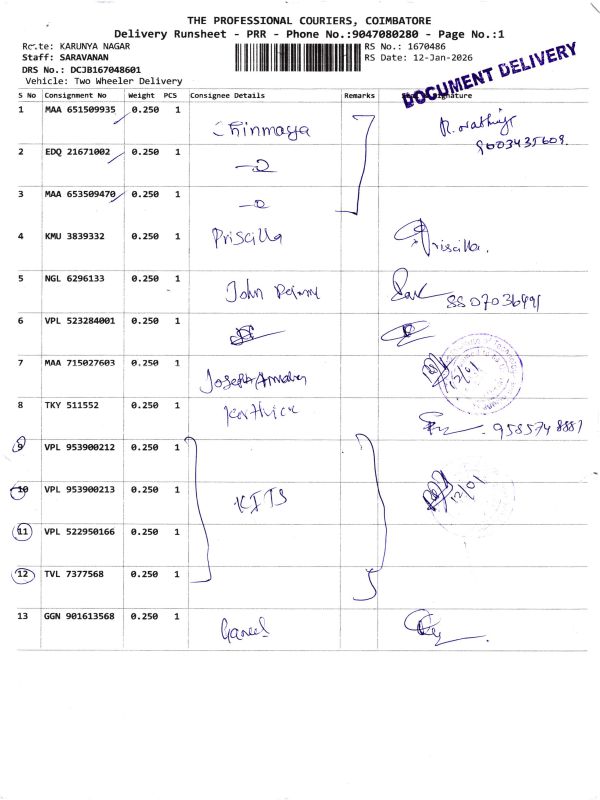 THE PROFESSIONAL COURIERS, COIMBATORE
Delivery Runsheet - PRR - Phone No.:9047080280 - Page No.:1
Route: KARUNYA NAGAR
RS No.: 1670486
Staff: SARAVANAN
RS Date: 12-Jan-2026
DRS No.: DCJB167048601
Vehicle: Two Wheeler Delivery
DOCUMENT DELIVERY
S No Consignment No Weight PCS Consignee Details Remarks Signature
1 MAA 651509935 0.250 1 Chinmaya
9003435609.
2 EDQ 21671002 0.250 1
3 MAA 653509470 0.250 1
4 KMU 3839332 0.250 1 Priscilla Priscilla.
5 NGL 6296133 0.250 1 John
8807036491
6 VPL 523284001 0.250 1
7 MAA 715027603 0.250 1 Joseph
12/01
8 TKY 511552 0.250 1 Karthick
9585748881
9 VPL 953900212 0.250 1
10 VPL 953900213 0.250 1 KITS 12/01
11 VPL 522950166 0.250 1
12 TVL 7377568 0.250 1
13 GGN 901613568 0.250 1 Ganesh